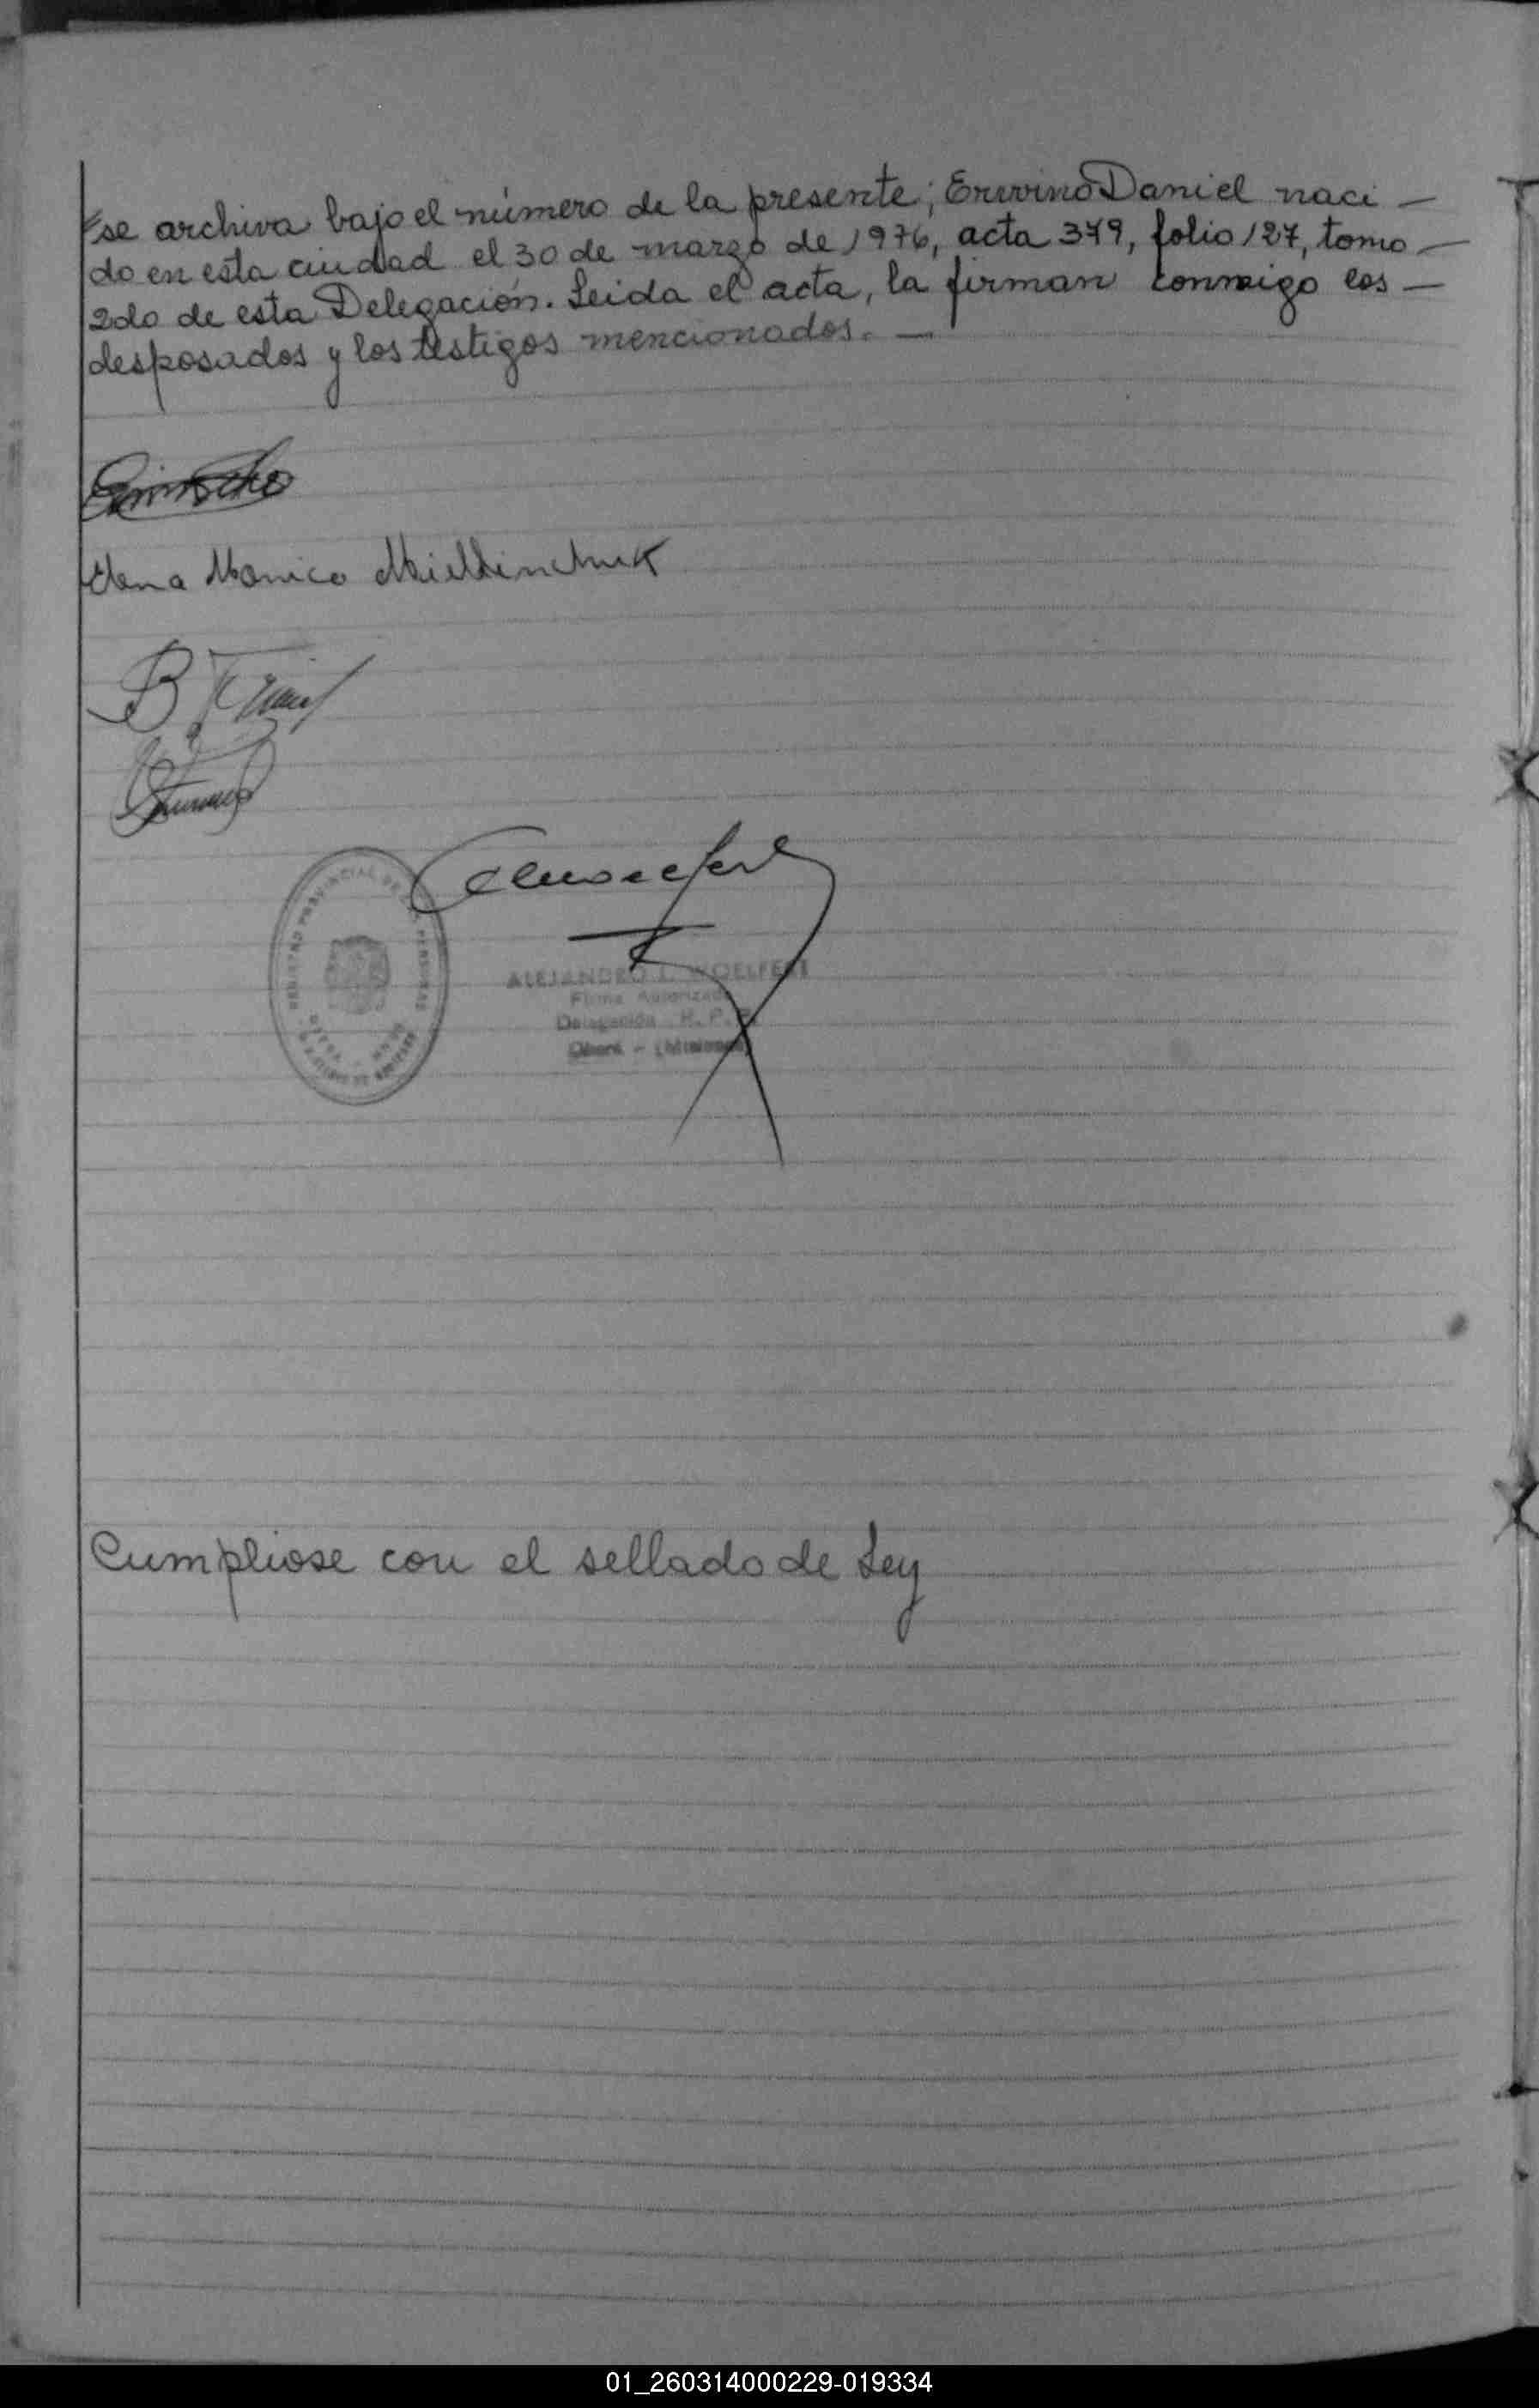 se archiva bajo el número de la presente; Erwino Daniel naci —
do en esta ciudad el 30 de marzo de 1976, acta 379, folio 127, tomo —
2do de esta Delegación. Leida el acta, la firman conmigo los —
desposados y los testigos mencionados. —
Elena Monica
REGISTRO PROVINCIAL DE LAS PERSONAS
ALEJANDRO L. WOELFERT
Firma Autorizada
Delegación R. P. P.
Oberá - (Misiones)
Cumpliose con el sellado de Ley
01_260314000229-019334